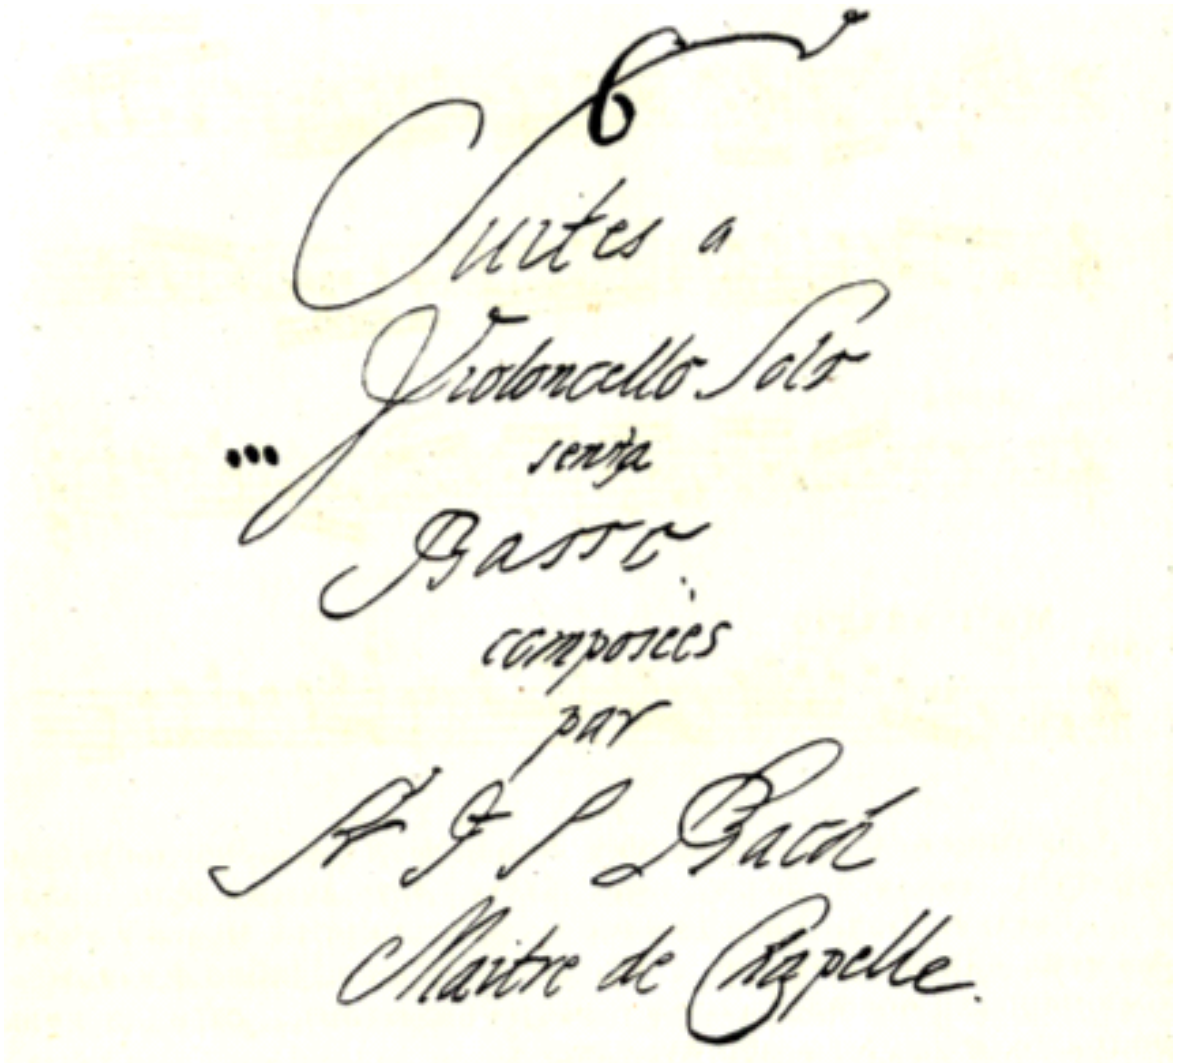 6
Suites a
Violoncello Solo
senza
Basso.
composées
par
Sr J. S. Bach
Maitre de Chapelle.